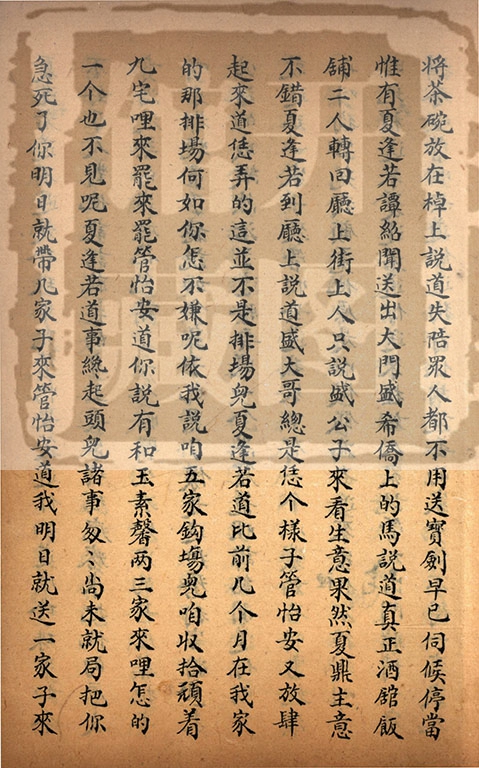 将茶碗放在棹上説道失陪眾人都不用送寶劍早已伺候停當
惟有夏逢若譚紹聞送出大門盛希僑上的馬説道真正酒舘飯
舖二人轉回廳上街上人只説盛公子來看生意果然夏鼎主意
不錯夏逢若到廳上説道盛大哥總是恁个樣子管怡安又放肆
起來道恁弄的這並不是排場兒夏逢若道比前几个月在我家
的那排場何如你怎不嫌呢依我説咱五家鈎塲兒咱収拾頑着
九宅哩來罷來罷管怡安道你説有和玉素馨两三家來哩怎的
一个也不見呢夏逢若道事纔起頭兒諸事匆〻尚未就局把你
急死了你明日就帶几家子來管怡安道我明日就送一家子來